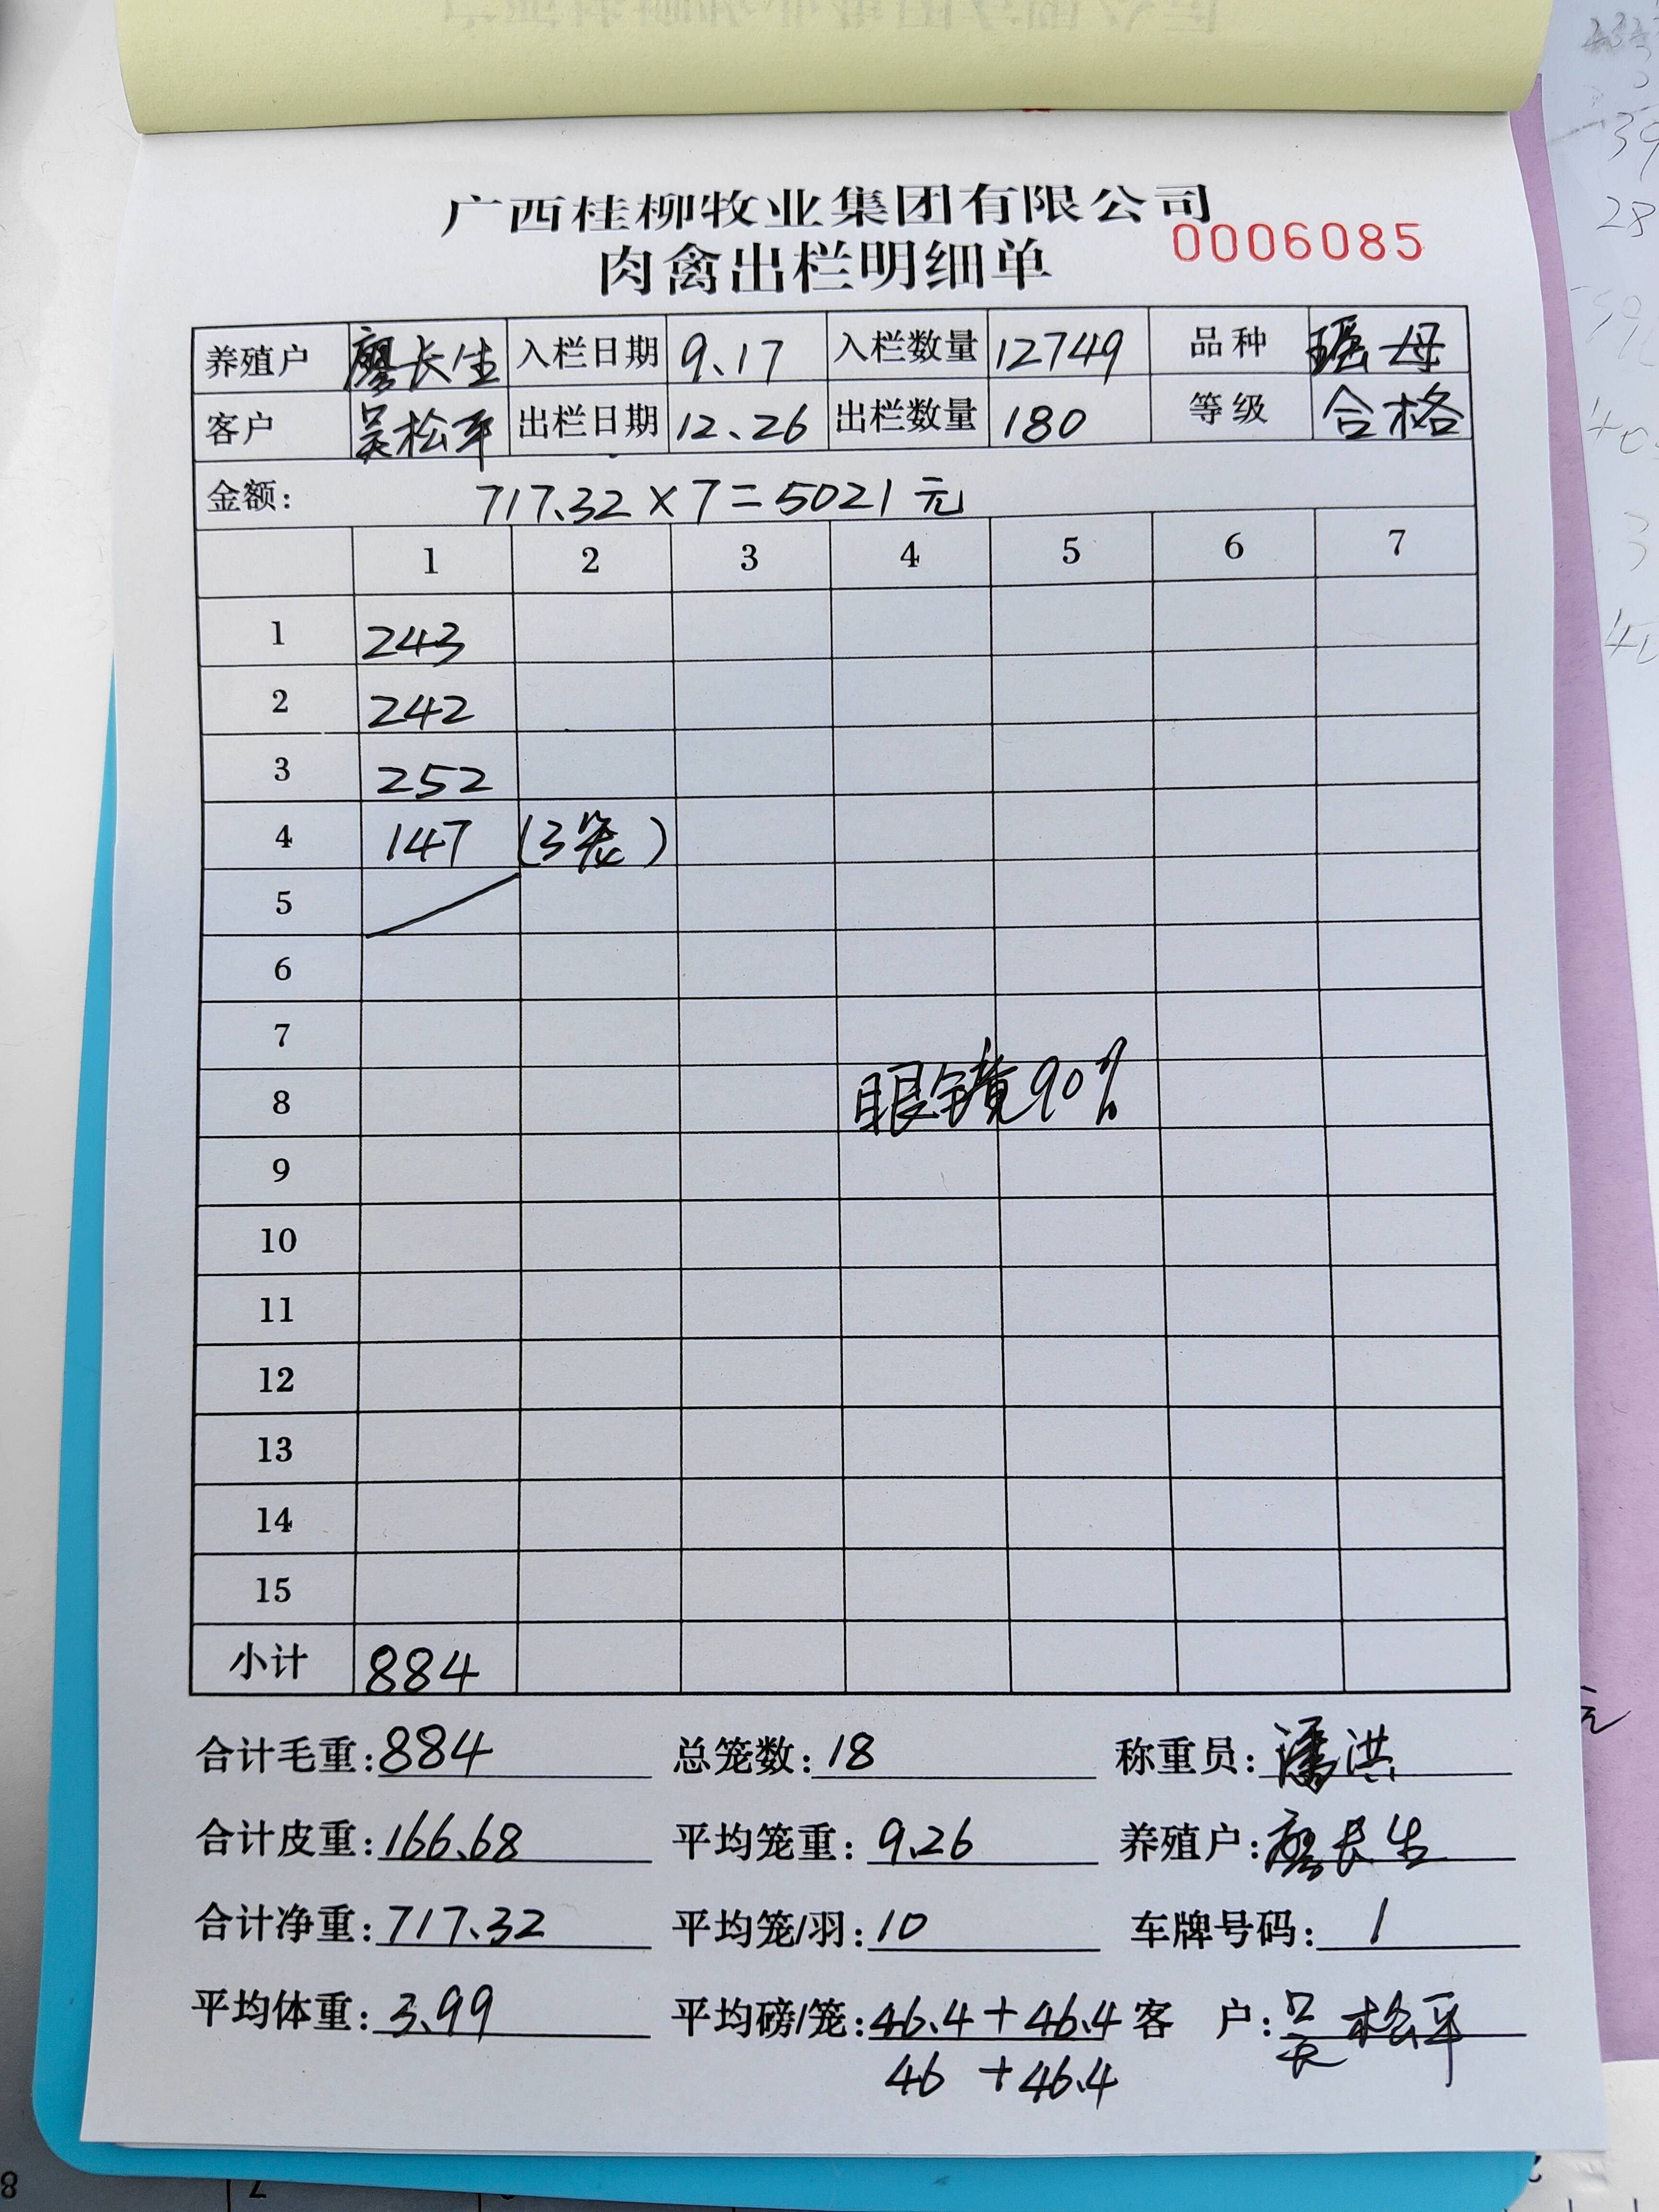 广西桂柳牧业集团有限公司
肉禽出栏明细单 0006085
养殖户 廖长生 入栏日期 9.17 入栏数量 12749 品种 瑶母
客户 吴松平 出栏日期 12.26 出栏数量 180 等级 合格
金额: 717.32 × 7 = 5021 元
1 2 3 4 5 6 7
1 243
2 242
3 252
4 147 (3笼)
5
6
7
8 眼镜90%
9
10
11
12
13
14
15
小计 884
合计毛重: 884 总笼数: 18 称重员: 潘洪
合计皮重: 166.68 平均笼重: 9.26 养殖户: 廖长生
合计净重: 717.32 平均笼/羽: 10 车牌号码: 1
平均体重: 3.99 平均磅/笼: 46.4 + 46.4 客 户: 吴松平
46 + 46.4